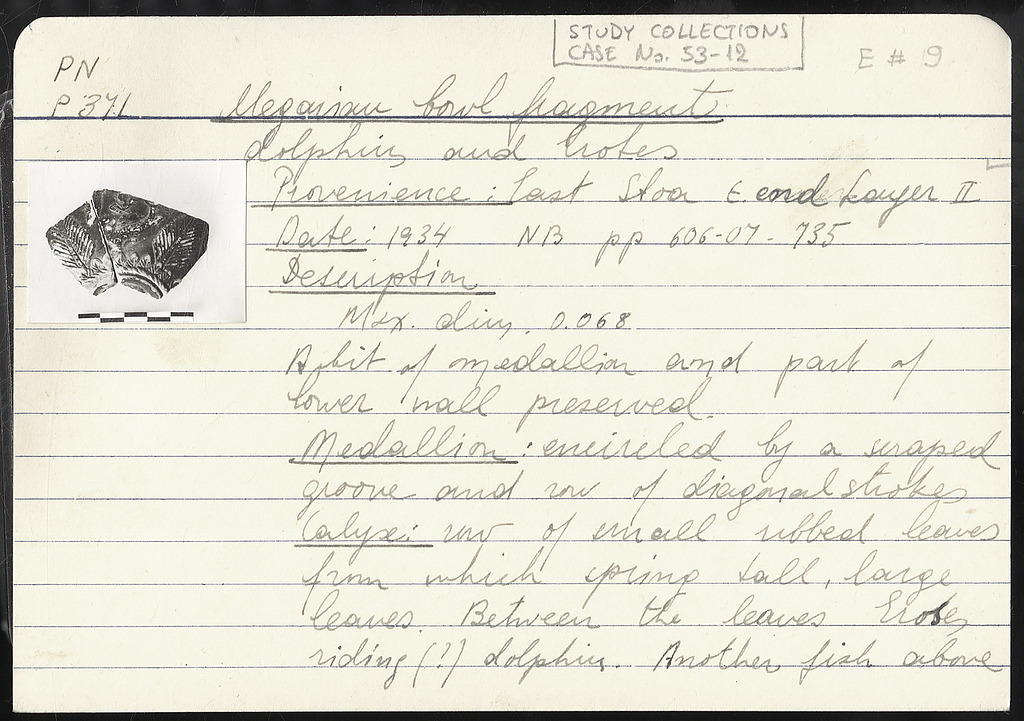 STUDY COLLECTIONS
CASE No. 53-12
E # 9
PN
P 371
Megarian bowl fragment
dolphins and Erotes
Provenience: East Stoa E. end Layer II
Date: 1934 NB pp 606-07 - 735
Description
Max. dim. 0.068
A bit of medallion and part of
lower wall preserved.
Medallion: encircled by a scraped
groove and row of diagonal strokes
Calyx: row of small ribbed leaves
from which spring tall, large
leaves. Between the leaves Erotes
riding (?) dolphins. Another fish above